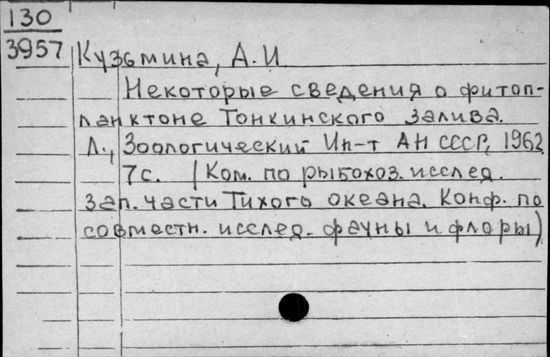 130
3957
Кузьмина, А.И
Некоторые сведения о фитоп-
ланктоне Тонкинского залива.
Л., Зоологический Ин-т АН СССР, 1962
7с. (Ком. по рыбохоз. исслед.
зап. части Тихого океана. Конф. по
совместн. исслед. фауны и флоры)